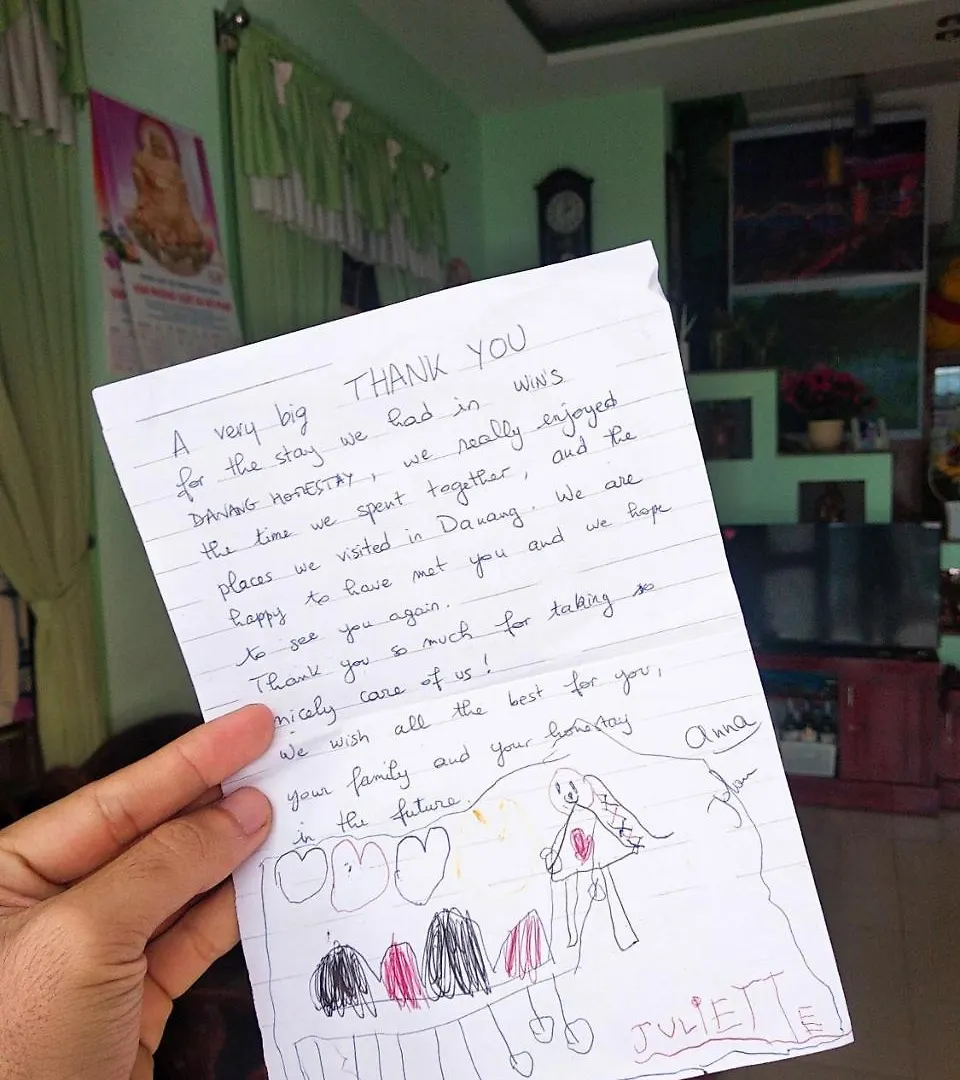 THANK YOU
A very big
for the stay we had in WIN'S
DANANG HOMESTAY, we really enjoyed
the time we spent together, and the
places we visited in Danang. We are
happy to have met you and we hope
to see you again.
Thank you so much for taking so
nicely care of us!
We wish all the best for you,
your family and your homestay
in the future.
anna
JULIETTE